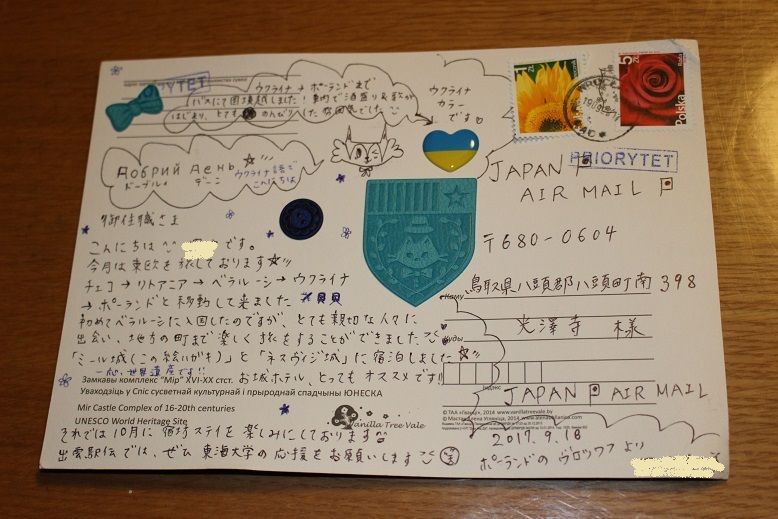 PRIORYTET
ウクライナ→ポーランドまで
バスにて国境越しました!車内で酒盛り&歌が
はじまり、とても のんびりした雰囲気でした
ウクライナ
カラー
です
1 ZŁ
5 ZŁ
Polska
PRIORYTET
Добрий День
ドーブルィ デーニ
ウクライナ語で
こんにちは
JAPAN
AIR MAIL
〒680-0604
御住職さま
こんにちは^^ です。
今月は東欧を旅しております
チェコ→リトアニア→ベラルーシ→ウクライナ
→ポーランドと移動して来ました
初めてベラルーシに入国したのですが、とても親切な人々に
出会い、地方の町まで楽しく旅をすることができました
「ミール城(この絵ハガキ)」と「ネスヴィジ城」に宿泊しました
一応、世界遺産です!!
お城ホテル、とってもオススメです!!
鳥取県八頭郡八頭町南398
Каму
光澤寺 様
Куды
індэкс
JAPAN AIR MAIL
Замкавы комплекс "Мір" XVI-XX стст.
Уваходзіць у Спіс сусветнай культурнай і прыроднай спадчыны ЮНЕСКА
Mir Castle Complex of 16-20th centuries
UNESCO World Heritage Site
Vanilla Tree Vale
それでは10月に宿坊ステイを楽しみにしております
出雲駅伝では、ぜひ 東海大学の応援をお願いします
2017.9.18
ポーランドのヴロツワフより